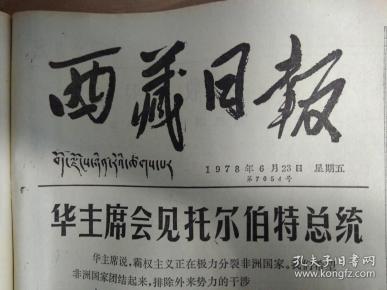 西藏日报
བོད་ལྗོངས་ཉིན་རེའི་ཚགས་པར
1978年6月23日 星期五
第7654号
华主席会见托尔伯特总统
华主席说,霸权主义正在极力分裂非洲国家。我们希望
非洲国家团结起来,排除外来势力的干涉
孔夫子旧书网